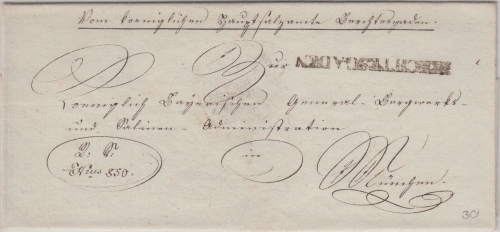 Vom koeniglichen Hauptsalzamte Berchtesgaden.
Zur
BERCHTESGADEN
Koeniglich Bayerischen General-Bergwerks-
und Salinen-Administration
R: S:
850.
in
München.
30